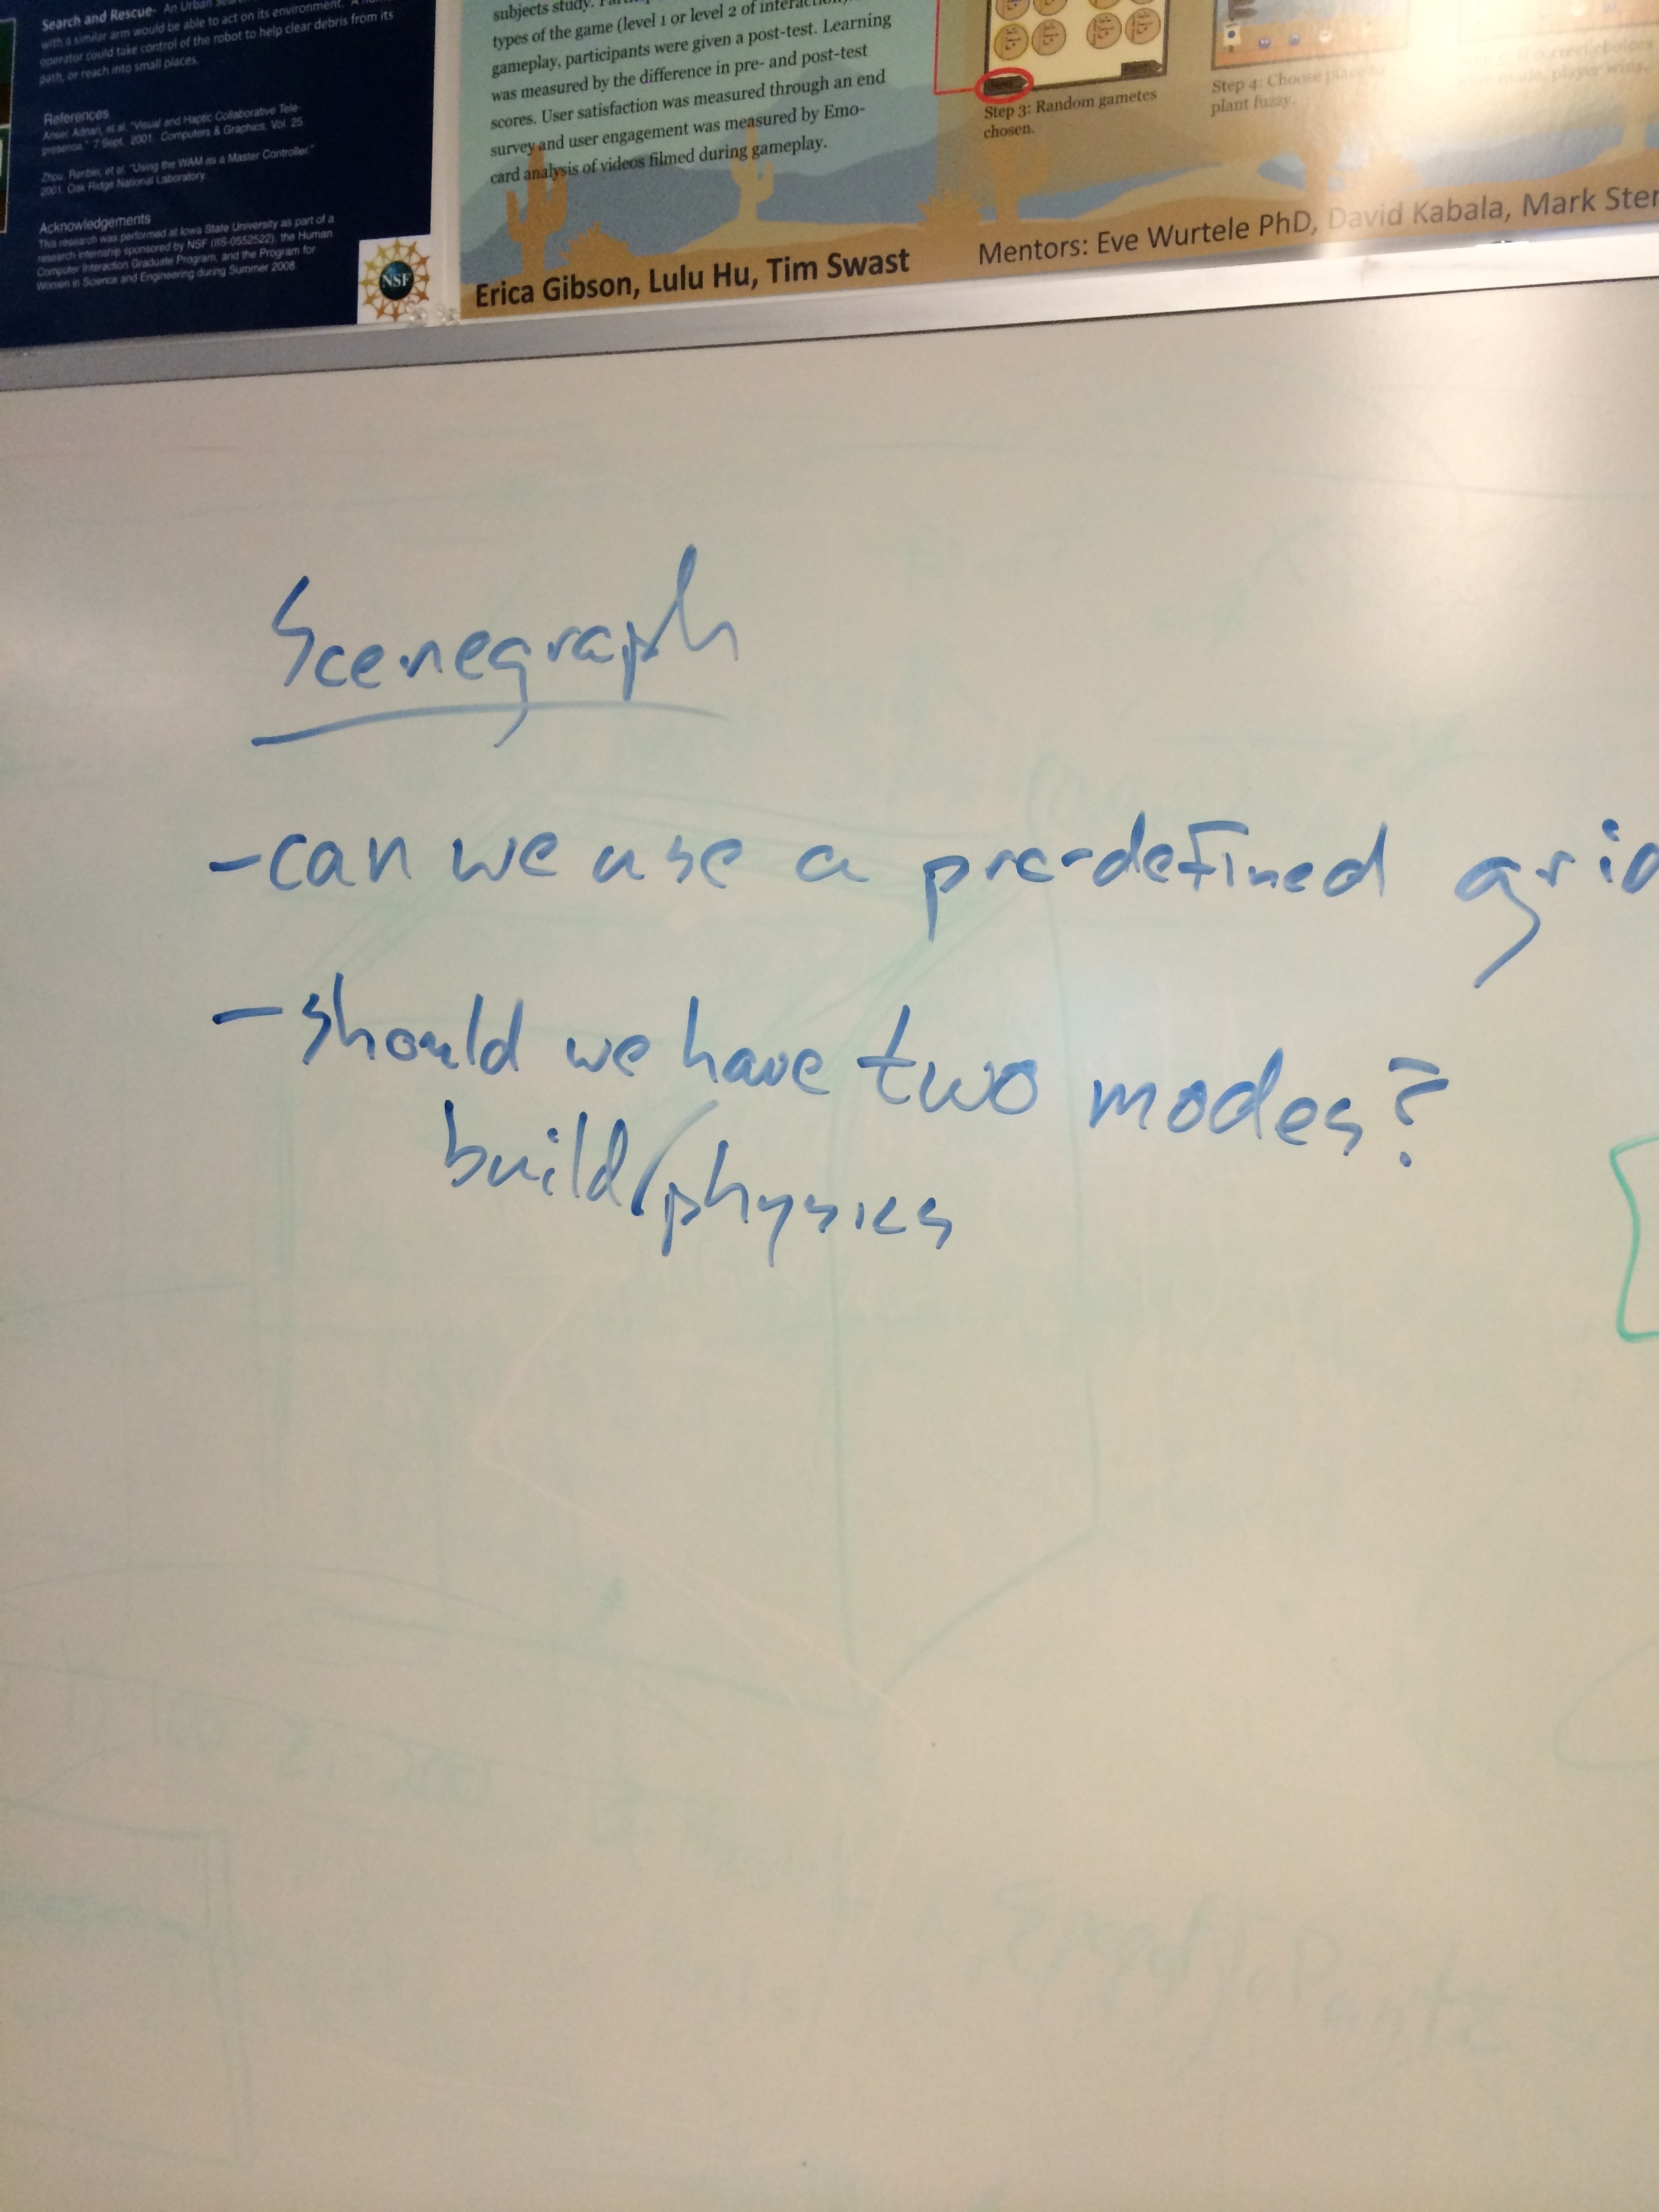 Search and Rescue- An Urban
with a similar arm would be able to act on its environment. A
operator could take control of the robot to help clear debris from its
path, or reach into small places.
References
Anser, Adnan, et al. "Visual and Haptic Collaborative Tele-
presence." 7 Sept. 2001. Computers & Graphics, Vol. 25.
Zhou, Renbin, et al. "Using the WAM as a Master Controller."
2001. Oak Ridge National Laboratory.
Acknowledgements
This research was performed at Iowa State University as part of a
research internship sponsored by NSF (IIS-0552522), the Human
Computer Interaction Graduate Program, and the Program for
Women in Science and Engineering during Summer 2008.
NSF
subjects study.
types of the game (level 1 or level 2 of interaction).
gameplay, participants were given a post-test. Learning
was measured by the difference in pre- and post-test
scores. User satisfaction was measured through an end
survey and user engagement was measured by Emo-
card analysis of videos filmed during gameplay.
Step 3: Random gametes
chosen.
Step 4: Choose place to
plant fuzzy.
correct choices
made, player wins.
Erica Gibson, Lulu Hu, Tim Swast
Mentors: Eve Wurtele PhD, David Kabala, Mark Ster
Scenegraph
-can we use a pre-defined grid
-should we have two modes?
build/physics